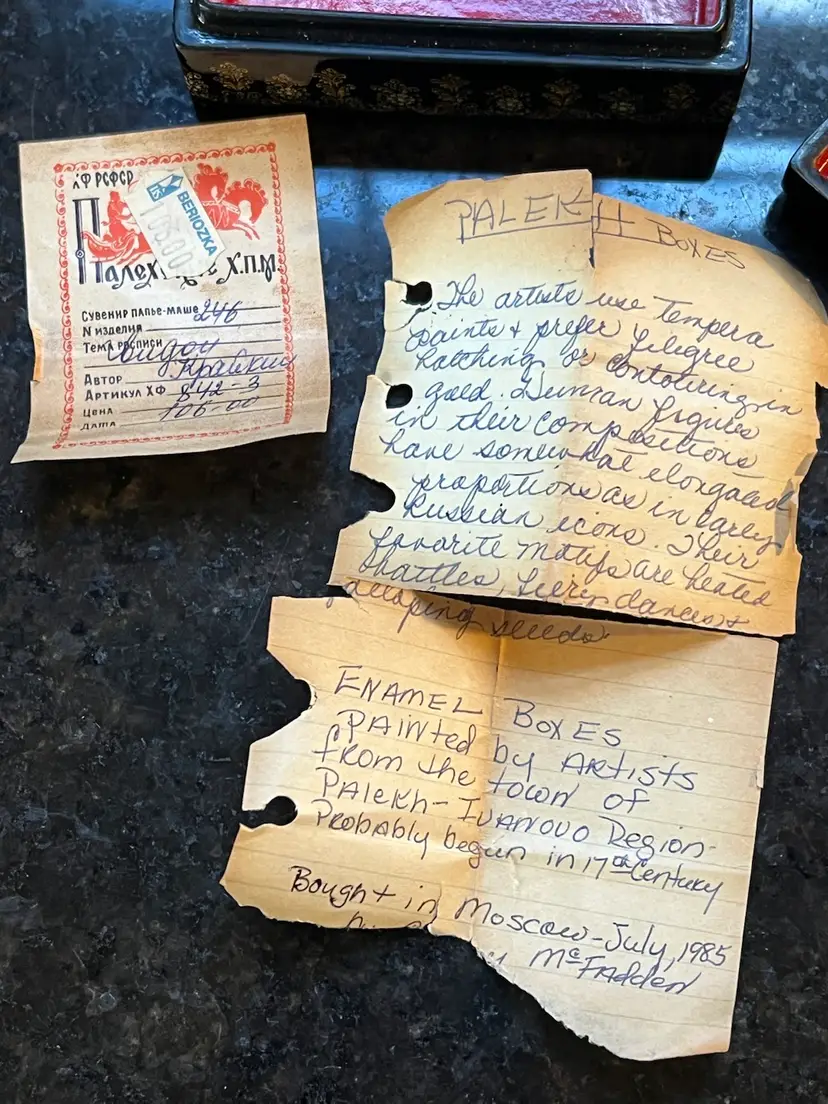 ХФ РСФСР
BERIOZKA
Х.П.М.
Сувенир папье-маше 246
N изделия
Тема росписи
Автор
Артикул ХФ 842-3
Цена 106-00
Дата
PALEKH BOXES
The artists use tempera
paints & prefer filegree
hatching or contouring in
gold. Human figures
in their compositions
have somewhat elongated
proportions as in early
Russian icons. Their
favorite motifs are heated
battles, fiery dances &
galloping steeds.
ENAMEL BOXES
PAINTED by ARTISTS
from the town of
PALEKH-IVANOVO Region-
Probably begun in 17th Century
Bought in Moscow-July, 1985
McFadden